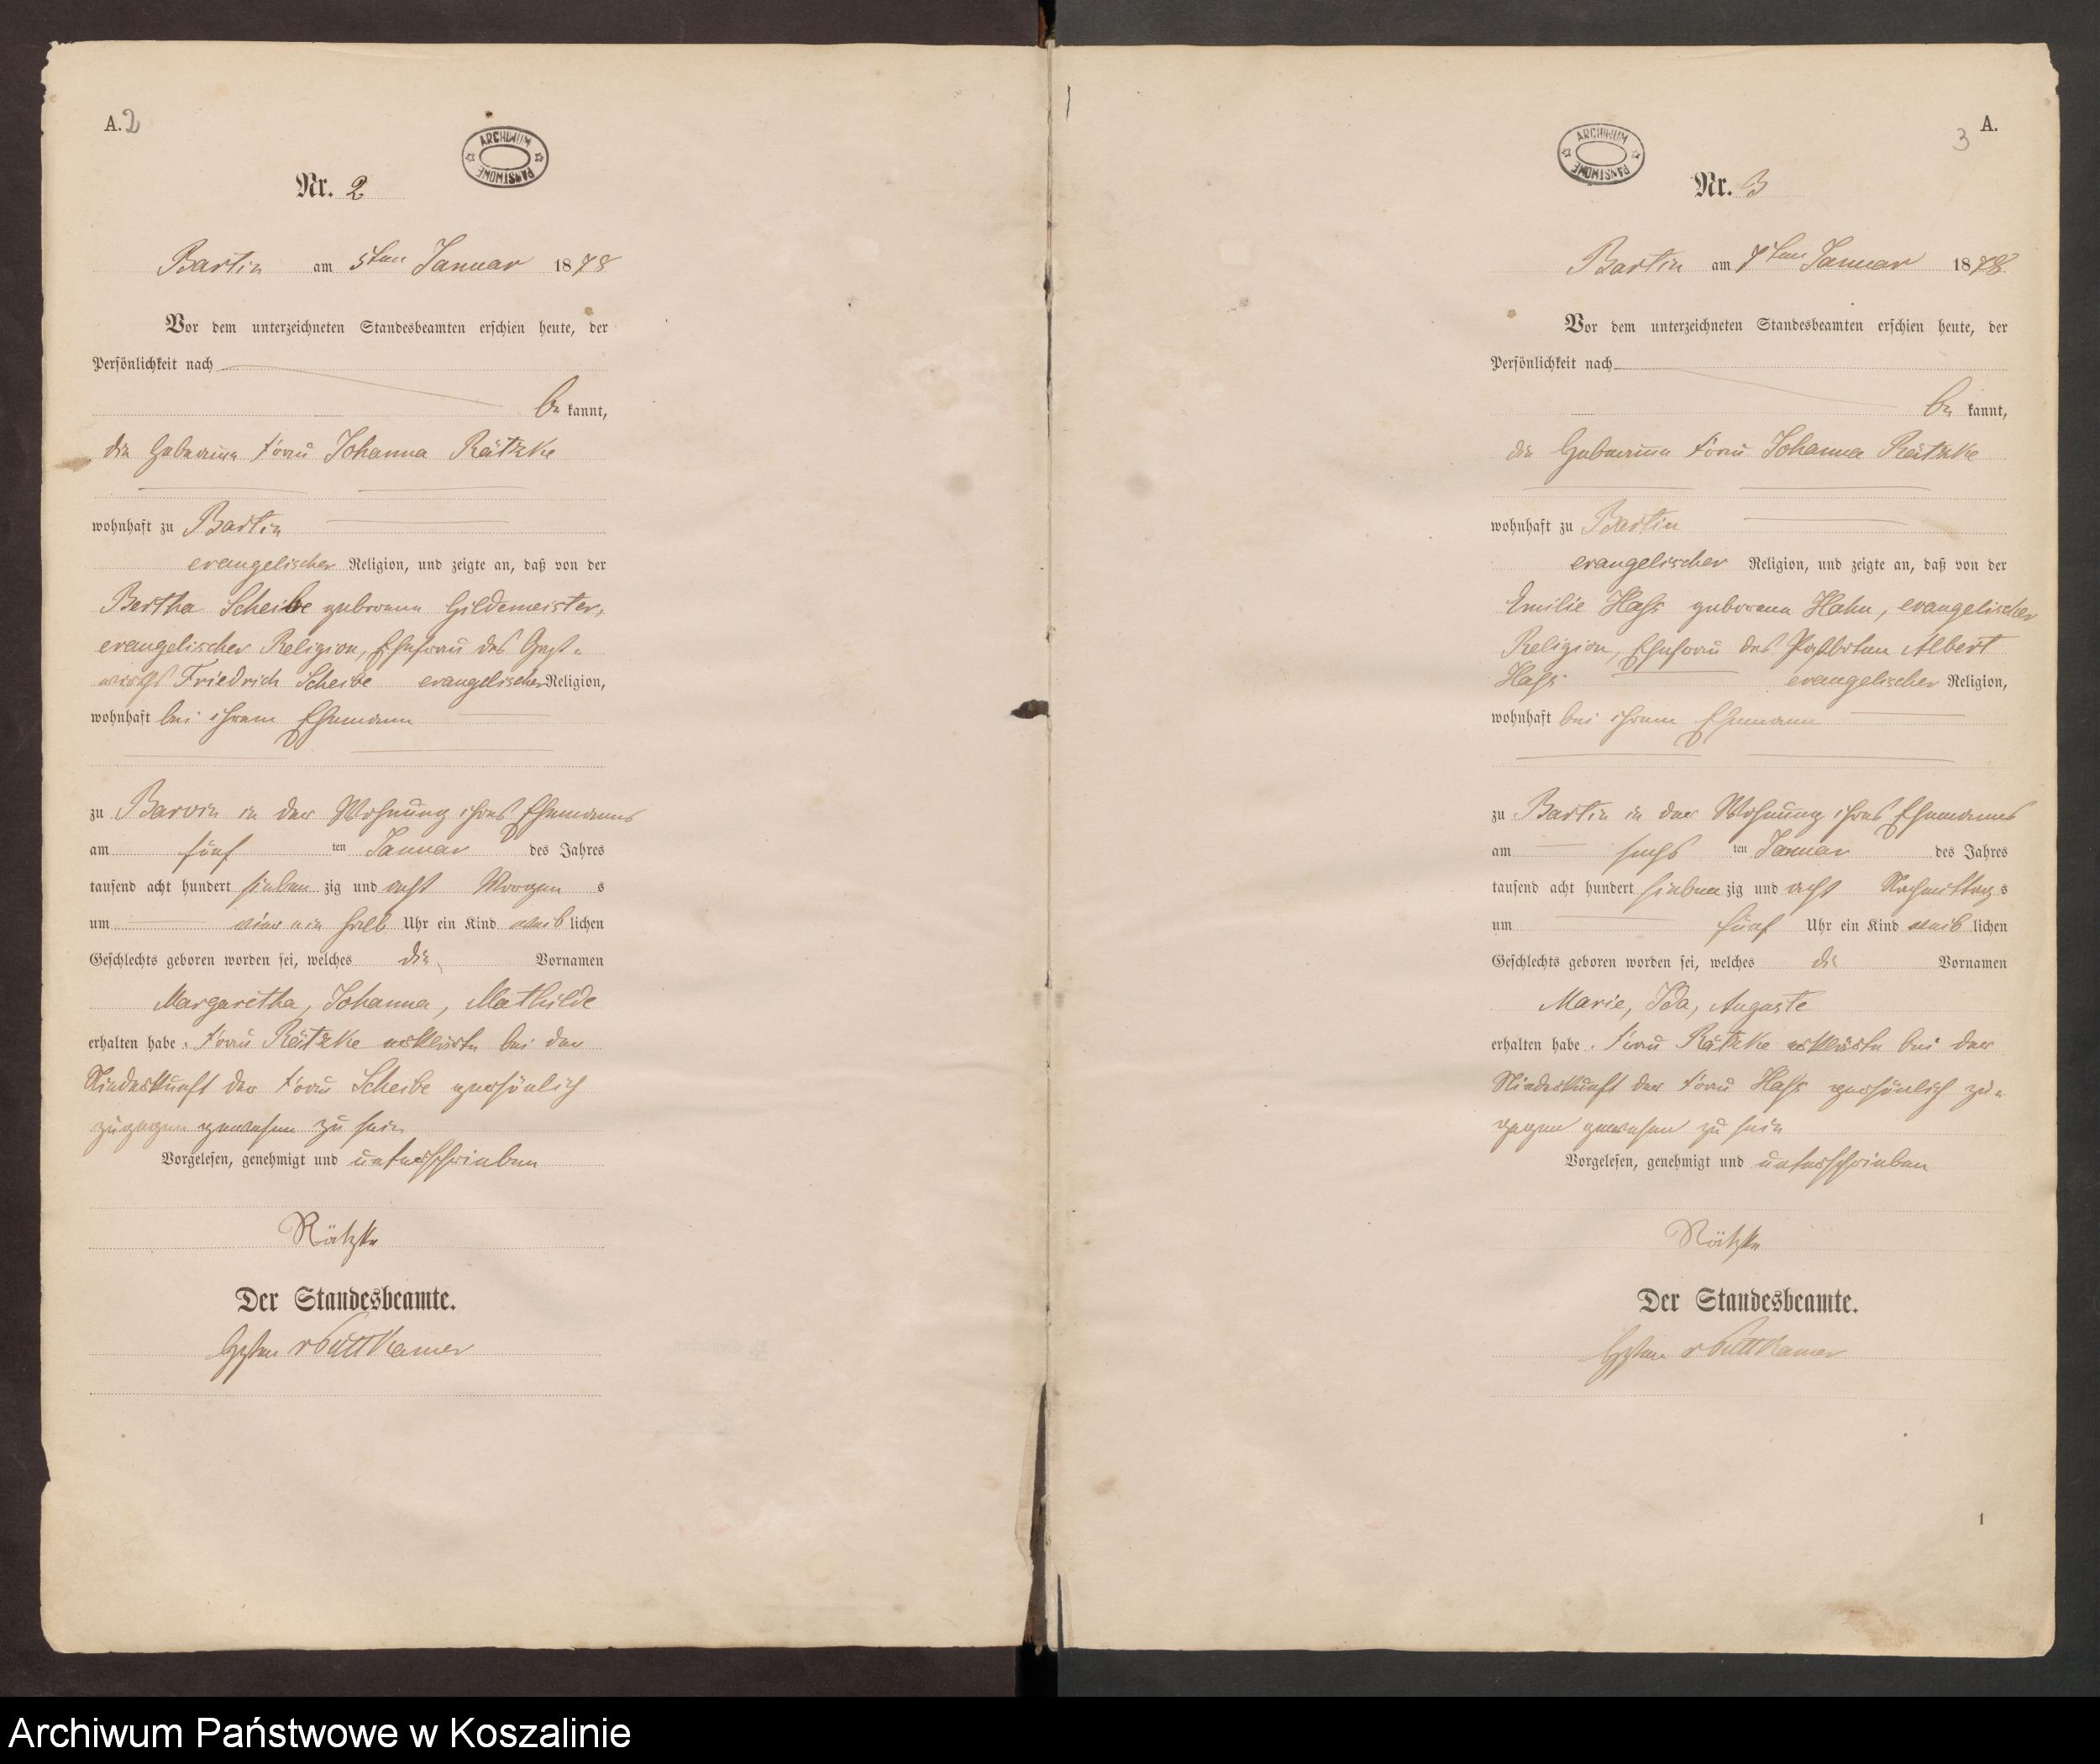 A. 2
ARCHIWUM PAŃSTWOWE
Nr. 2
Bartin am 5ten Januar 1878
Vor dem unterzeichneten Standesbeamten erschien heute, der
Persönlichkeit nach
be kannt,
die Hebamme Frau Johanna Rätzke
wohnhaft zu Bartin
evangelischer Religion, und zeigte an, daß von der
Bertha Scheibe geborene Gildemeister,
evangelischer Religion, Ehefrau des Gast-
wirths Friedrich Scheibe evangelischer Religion,
wohnhaft bei ihrem Ehemann
zu Barvin in der Wohnung ihres Ehemanns
am fünf ten Januar des Jahres
tausend acht hundert sieben zig und acht Morgen s
um vier ein halb Uhr ein Kind weib lichen
Geschlechts geboren worden sei, welches die Vornamen
Margaretha, Johanna, Mathilde
erhalten habe. Frau Rätzke erklärte bei der
Niederkunft der Frau Scheibe persönlich
zugegen gewesen zu sein
Vorgelesen, genehmigt und unterschrieben
Rätzke
Der Standesbeamte.
v Puttkamer
3 A.
ARCHIWUM PAŃSTWOWE
Nr. 3
Bartin am 7ten Januar 1878
Vor dem unterzeichneten Standesbeamten erschien heute, der
Persönlichkeit nach
be kannt,
die Hebamme Frau Johanna Rätzke
wohnhaft zu Bartin
evangelischer Religion, und zeigte an, daß von der
Emilie Hass geborene Hahn, evangelischer
Religion, Ehefrau des Postboten Albert
Hass evangelischer Religion,
wohnhaft bei ihrem Ehemann
zu Bartin in der Wohnung ihres Ehemannes
am sechs ten Januar des Jahres
tausend acht hundert sieben zig und acht Nachmittag s
um fünf Uhr ein Kind weib lichen
Geschlechts geboren worden sei, welches die Vornamen
Marie, Ida, Auguste
erhalten habe. Frau Rätzke erklärte bei der
Niederkunft der Frau Hass persönlich zu-
gegen gewesen zu sein
Vorgelesen, genehmigt und unterschrieben
Rätzke
Der Standesbeamte.
v Puttkamer
1
Archiwum Państwowe w Koszalinie